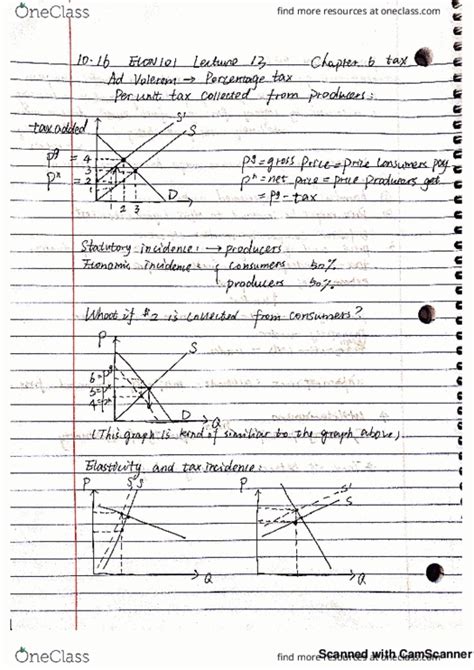 OneClass
find more resources at oneclass.com
10-16 ECON101 Lecture 13 Chapter 6 tax
Ad Valorem → Percentage tax
Per unit tax collected from producers:
tax added
S'
S
pg = 4
3
pn = 2
1
1 2 3
D
pg = gross price = price consumers pay
pn = net price = price producers get
= pg - tax
Statutory incidence: → producers
Economic incidence: { consumers 50%
producers 50%
What if $2 is collected from consumers?
P
S
6 = pg
5 = pe
4 = pn
D
Q
(This graph is kind of similiar to the graph above).
Elasticity and tax incidence:
P
S' S
Q
P
S'
S
Q
Scanned with CamScanner
OneClass
find more resources at oneclass.com